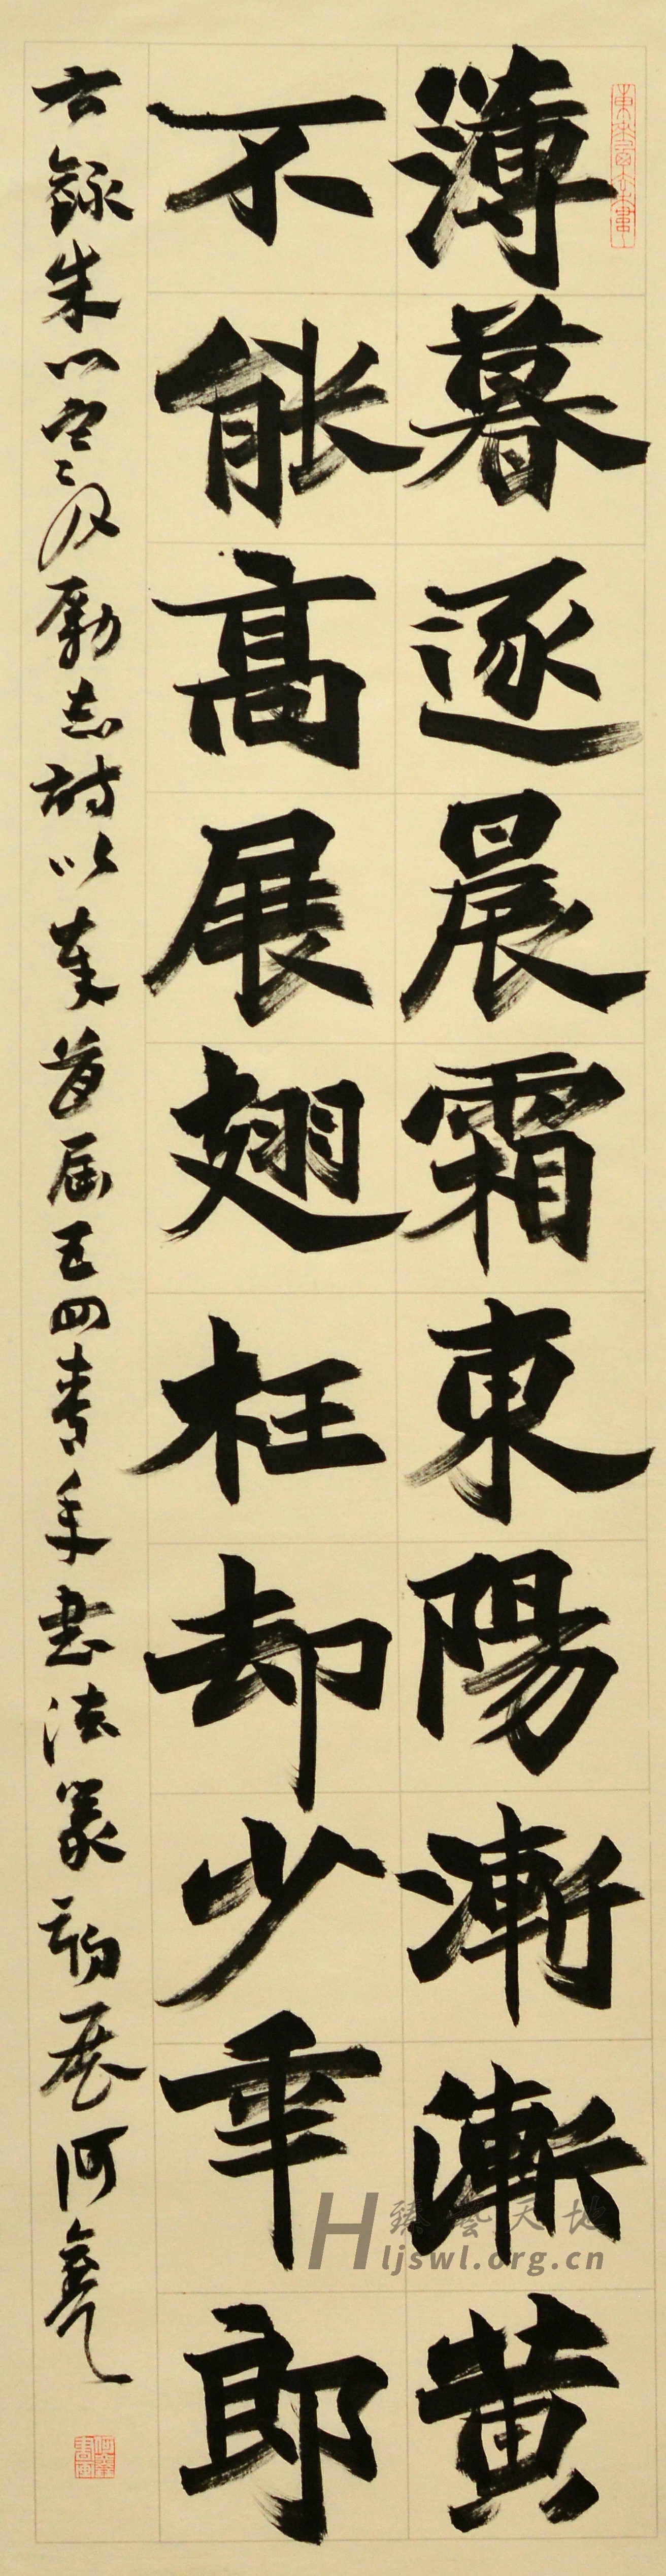 薄暮逐晨霜東陽漸漸黄
不能高展翅枉却少年郎
右録朱以宽之及勵志詩以奉首届五四青年書法篆刻展何鑫
臻藝天地
Hljswl.org.cn